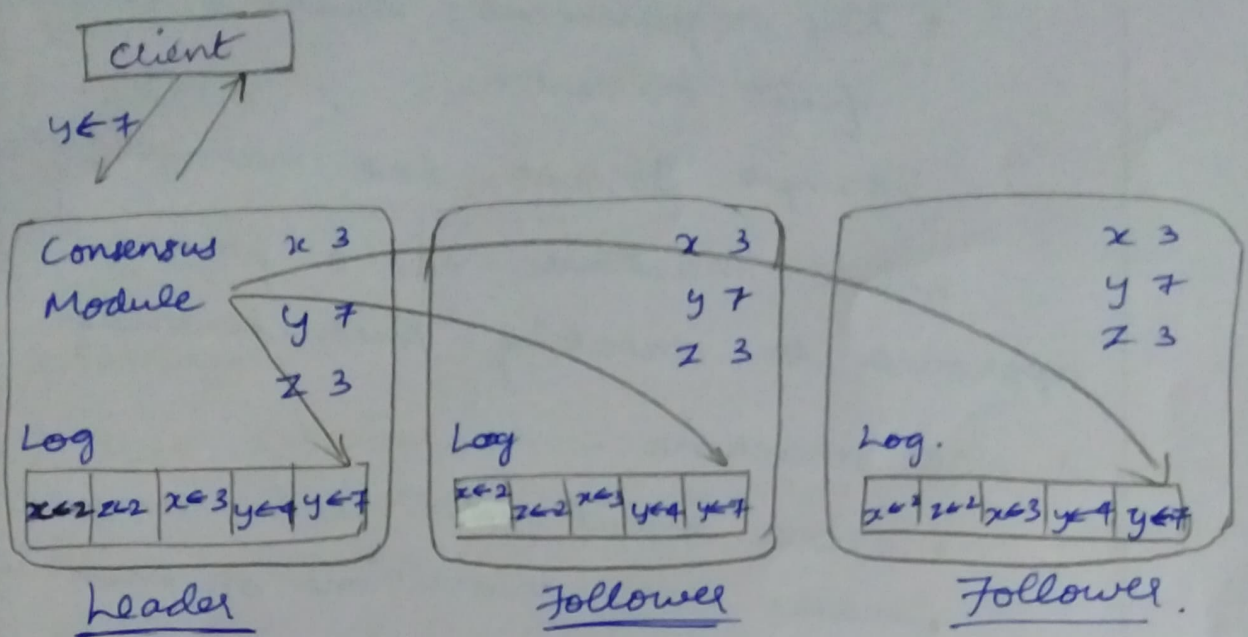 Client
y←7
Consensus
Module
x 3
y 7
z 3
Log
x←2 z←2 x←3 y←4 y←7
Leader
x 3
y 7
z 3
Log
x←2 z←2 x←3 y←4 y←7
Follower
x 3
y 7
z 3
Log.
z←2 x←3 y←4 y←7
Follower.